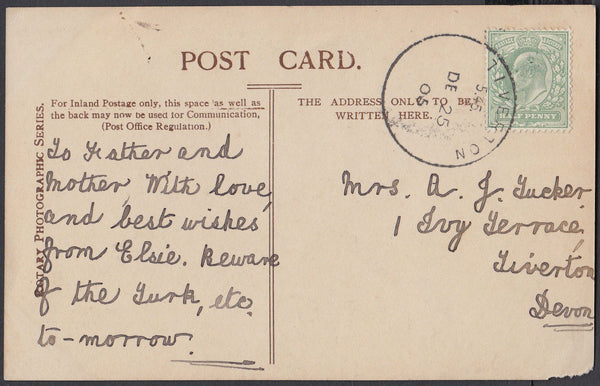 POST CARD.
For Inland Postage only, this space as well as
the back may now be used for Communication,
(Post Office Regulation.)
THE ADDRESS ONLY TO BE
WRITTEN HERE.
ROTARY PHOTOGRAPHIC SERIES.
To Father and
Mother, With love
and best wishes
from Elsie. Beware
of the Turk, etc.
to-morrow.
Mrs. A. J. Tucker
1 Ivy Terrace,
Tiverton
Devon
TIVERTON
DE 25
05
HALF PENNY